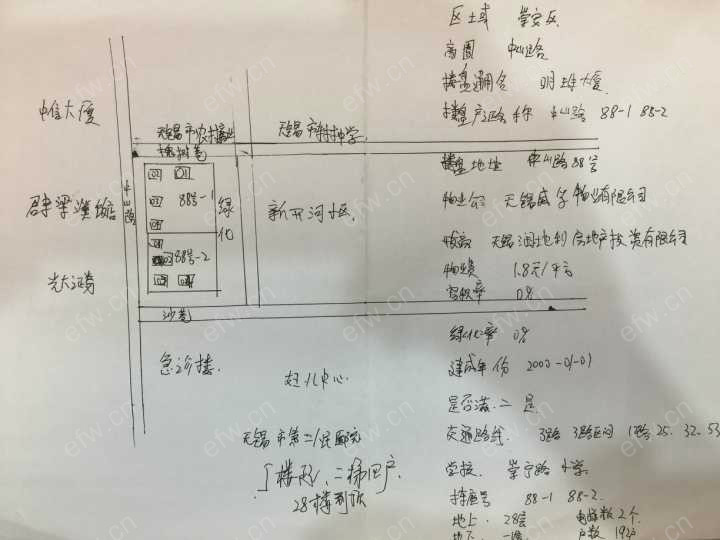 区域 崇安区
商圈 中山路
楼盘通名 明珠大厦
楼盘产证名称 中山路 88-1 88-2
楼盘地址 中山路88号
物业公司 无锡 物业有限公司
无锡润地利房地产投资有限公司
物业费 1.8元/平方
容积率 0%
绿化率 0%
建成年份 2000-01-01
是否满二 是
交通路线 3路 3路区间 1路 25. 32. 53
学校. 崇宁路小学
栋座号 88-1 88-2
地上. 28层 电梯数2个.
地下. 一层 户数 192户
中信大厦
无锡市特种学
槐树巷
中山路
88号-1
88号-2
绿化
新开河小区
沙巷
急诊楼.
妇儿中心
无锡市第二人民医院
楼形 二梯四户.
28楼到顶
efw.cn